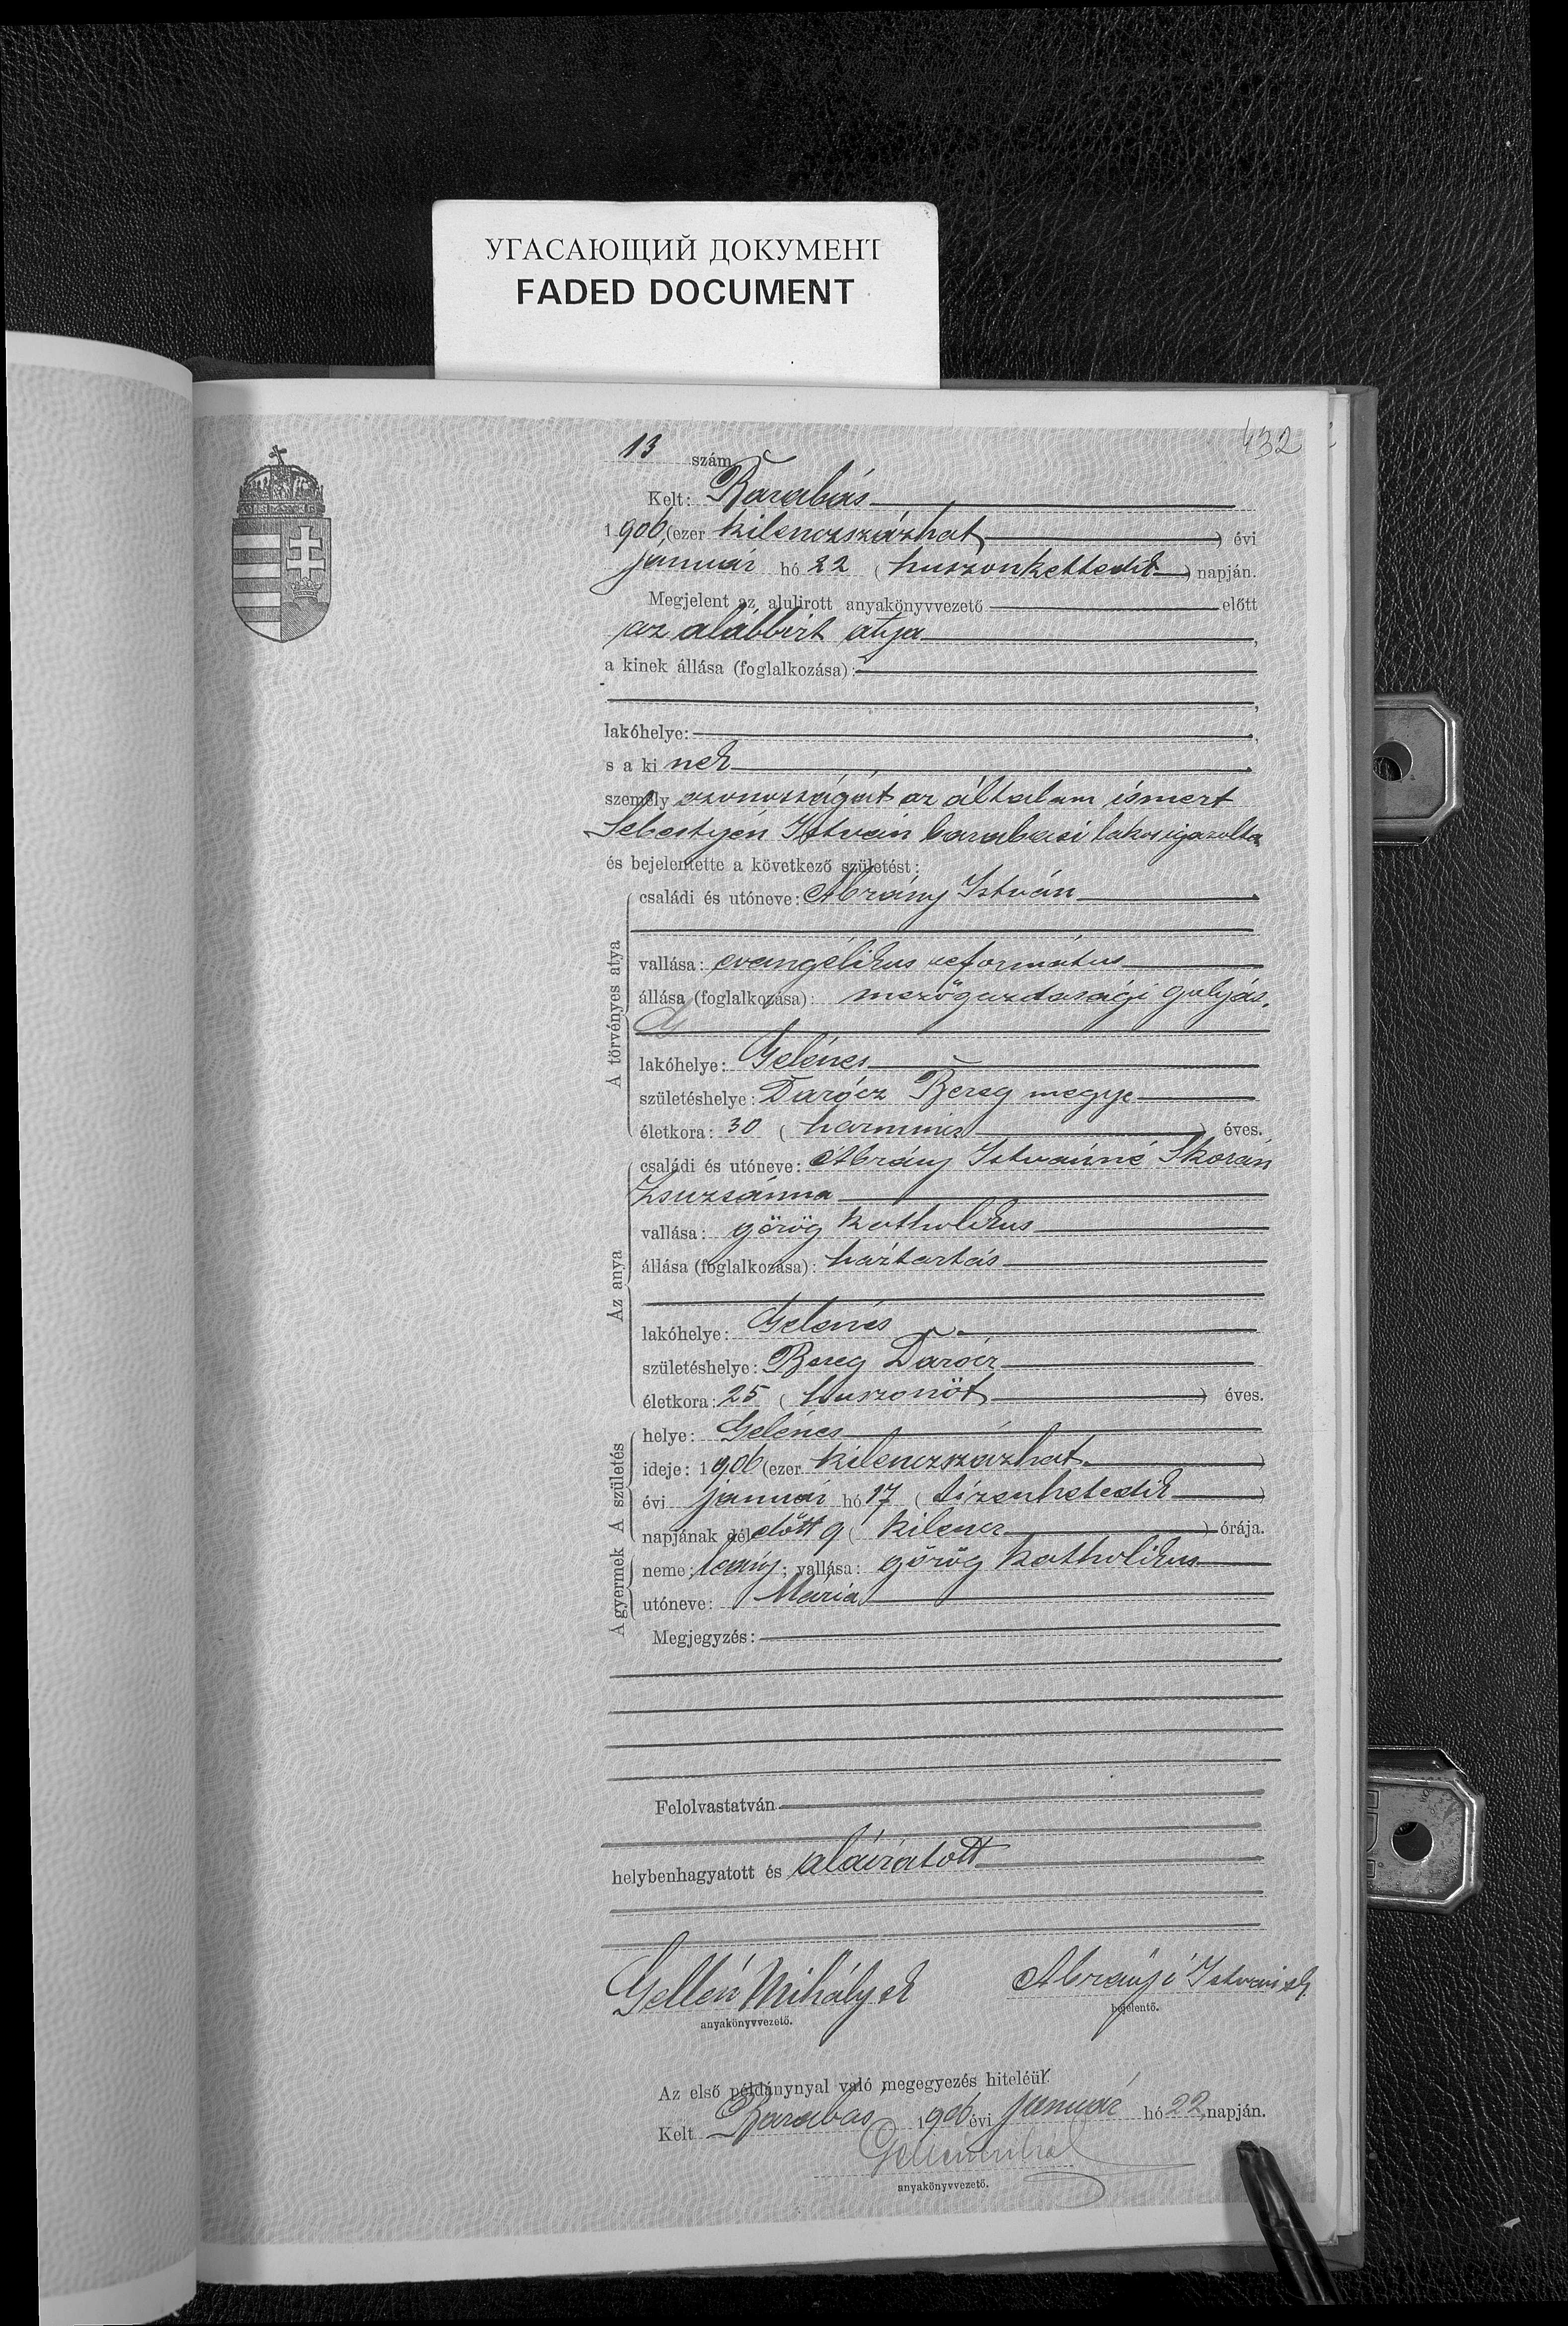 УГАСАЮЩИЙ ДОКУМЕНТ
FADED DOCUMENT
432
13 szám
Kelt: Barabás
1906 (ezer kilenczszázhat) évi
január hó 22 (huszonkettedik) napján.
Megjelent az alulirott anyakönyvvezető előtt
az alábbirt atya,
a kinek állása (foglalkozása):
lakóhelye:
s a ki nek
személy azonosságát az általam ismert
Sebestyén István barabási lakos igazolta
és bejelentette a következő születést:
A törvényes atya
családi és utóneve: Abrány István
vallása: evangélikus református
állása (foglalkozása): mezőgazdasági gulyás,
lakóhelye: Gelénes
születéshelye: Darócz Bereg megye
életkora: 30 (harmincz) éves.
Az anya
családi és utóneve: Abrány Istvánné Skorán
Zsuzsánna
vallása: görög katholikus
állása (foglalkozása): háztartás
lakóhelye: Gelénes
születéshelye: Bereg Darócz
életkora: 25 (huszonöt) éves.
A születés
helye: Gelénes
ideje: 1906 (ezer kilenczszázhat)
évi január hó 17 (tizenhetedik)
napjának délelőtt 9 (kilencz) órája.
A gyermek
neme: leány; vallása: görög katholikus
utóneve: Mária
Megjegyzés:
Felolvastatván
helybenhagyatott és aláiratott
Gellén Mihály sk Abrányi István sk.
anyakönyvvezető. bejelentő.
Az első példánynyal való megegyezés hiteléül:
Kelt Barabás 1906 évi január hó 22 napján.
anyakönyvvezető.